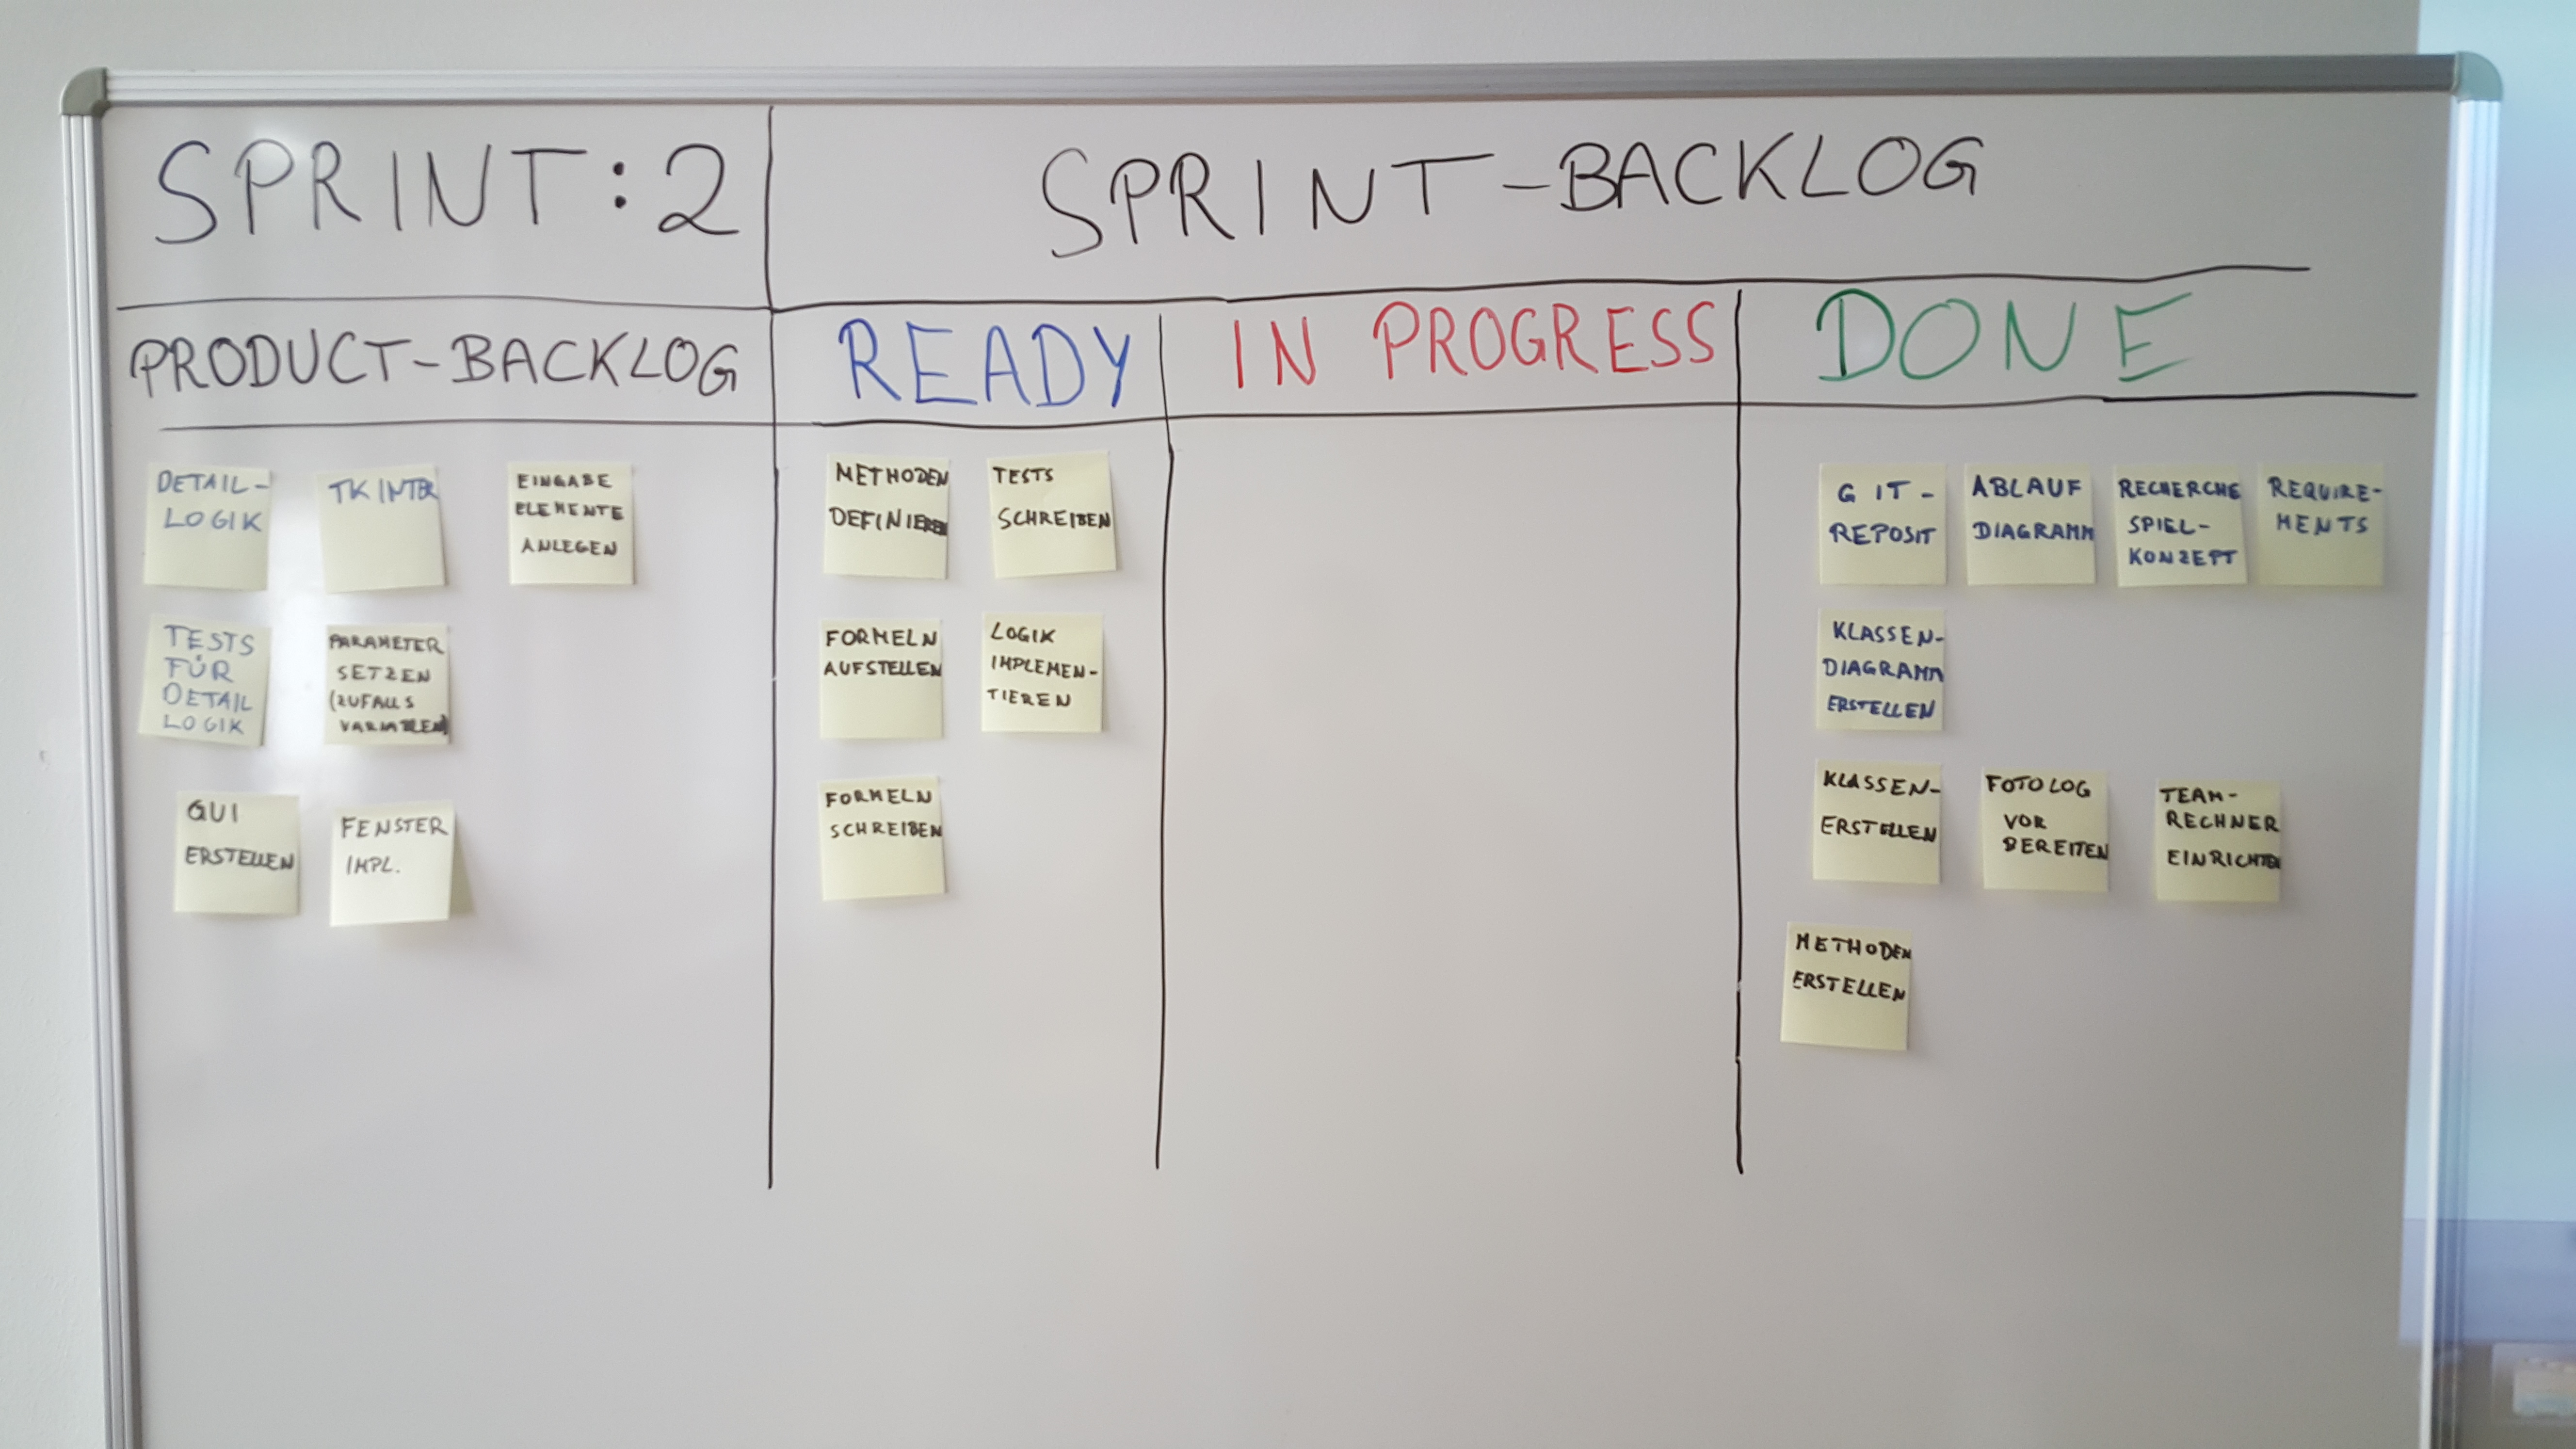 SPRINT:2
SPRINT-BACKLOG
PRODUCT-BACKLOG
READY
IN PROGRESS
DONE
DETAIL-
LOGIK
TKINTER
EINGABE
ELEMENTE
ANLEGEN
TESTS
FÜR
DETAIL
LOGIK
PARAMETER
SETZEN
(ZUFALLS
VARIABLEN)
GUI
ERSTELLEN
FENSTER
IMPL.
METHODEN
DEFINIEREN
TESTS
SCHREIBEN
FORMELN
AUFSTELLEN
LOGIK
IMPLEMEN-
TIEREN
FORMELN
SCHREIBEN
GIT-
REPOSIT
ABLAUF
DIAGRAMM
RECHERCHE
SPIEL-
KONZEPT
REQUIRE-
MENTS
KLASSEN-
DIAGRAMM
ERSTELLEN
KLASSEN-
ERSTELLEN
FOTOLOG
VOR
BEREITEN
TEAM-
RECHNER
EINRICHTEN
METHODEN
ERSTELLEN